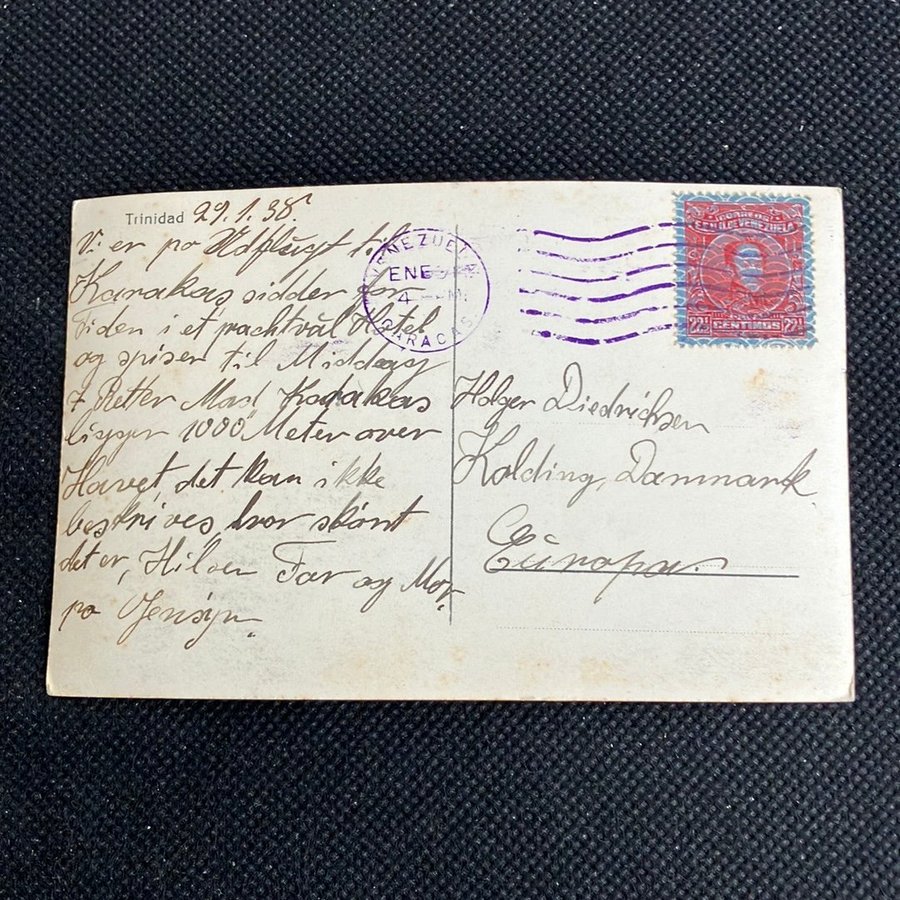 Trinidad 29.1.38.
Vi er po Udflugt til
Karakas sidder for
Tiden i et pachtvål Hotel
og spiser til Middag
7 Retter Mad Karakas
ligger 1000 Meter over
Havet det kan ikke
beskrives hvor skönt
det er, Far og Mor.
po Gensyn.
VENEZUELA
ENE
4 M.
CARACAS
CORREOS
EE.UU. DE VENEZUELA
22½ CENTIMOS 22½
Holger Diedrichsen
Kolding, Danmark.
Europa.